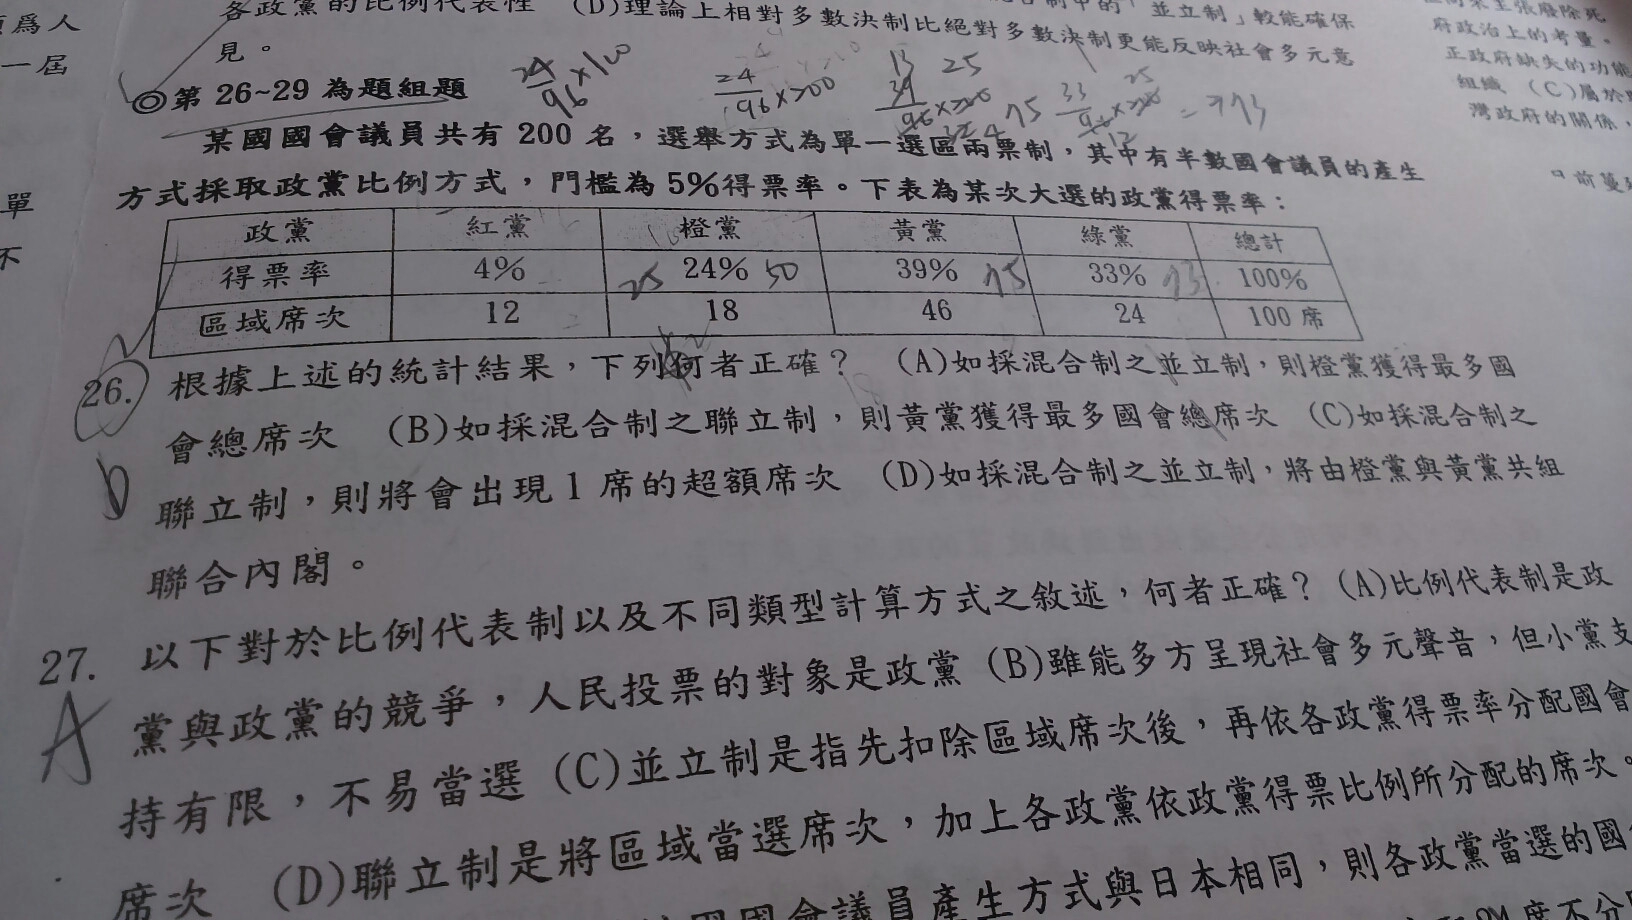 各政黨的比例代表性　(D)理論上相對多數決制比絕對多數決制更能反映社會多元意
見。
◎第 26~29 為題組題
某國國會議員共有 200 名，選舉方式為單一選區兩票制，其中有半數國會議員的產生
方式採取政黨比例方式，門檻為 5%得票率。下表為某次大選的政黨得票率：
政黨 紅黨 橙黨 黃黨 綠黨 總計
得票率 4% 25 24% 50 39% 75 33% 73 100%
區域席次 12 18 46 24 100 席
26. 根據上述的統計結果，下列何者正確？　(A)如採混合制之並立制，則橙黨獲得最多國
會總席次　(B)如採混合制之聯立制，則黃黨獲得最多國會總席次　(C)如採混合制之
聯立制，則將會出現 1 席的超額席次　(D)如採混合制之並立制，將由橙黨與黃黨共組
聯合內閣。
27. 以下對於比例代表制以及不同類型計算方式之敘述，何者正確？ (A)比例代表制是政
A
黨與政黨的競爭，人民投票的對象是政黨 (B)雖能多方呈現社會多元聲音，但小黨支
持有限，不易當選 (C)並立制是指先扣除區域席次後，再依各政黨得票率分配國會
席次　(D)聯立制是將區域當選席次，加上各政黨依政黨得票比例所分配的席次。
國會議員產生方式與日本相同，則各政黨當選的國
為人
一屆
單
不
主張廢除死
府政治上的考量。
正政府缺失的功能
組織　(C)屬於
灣政府的關係，